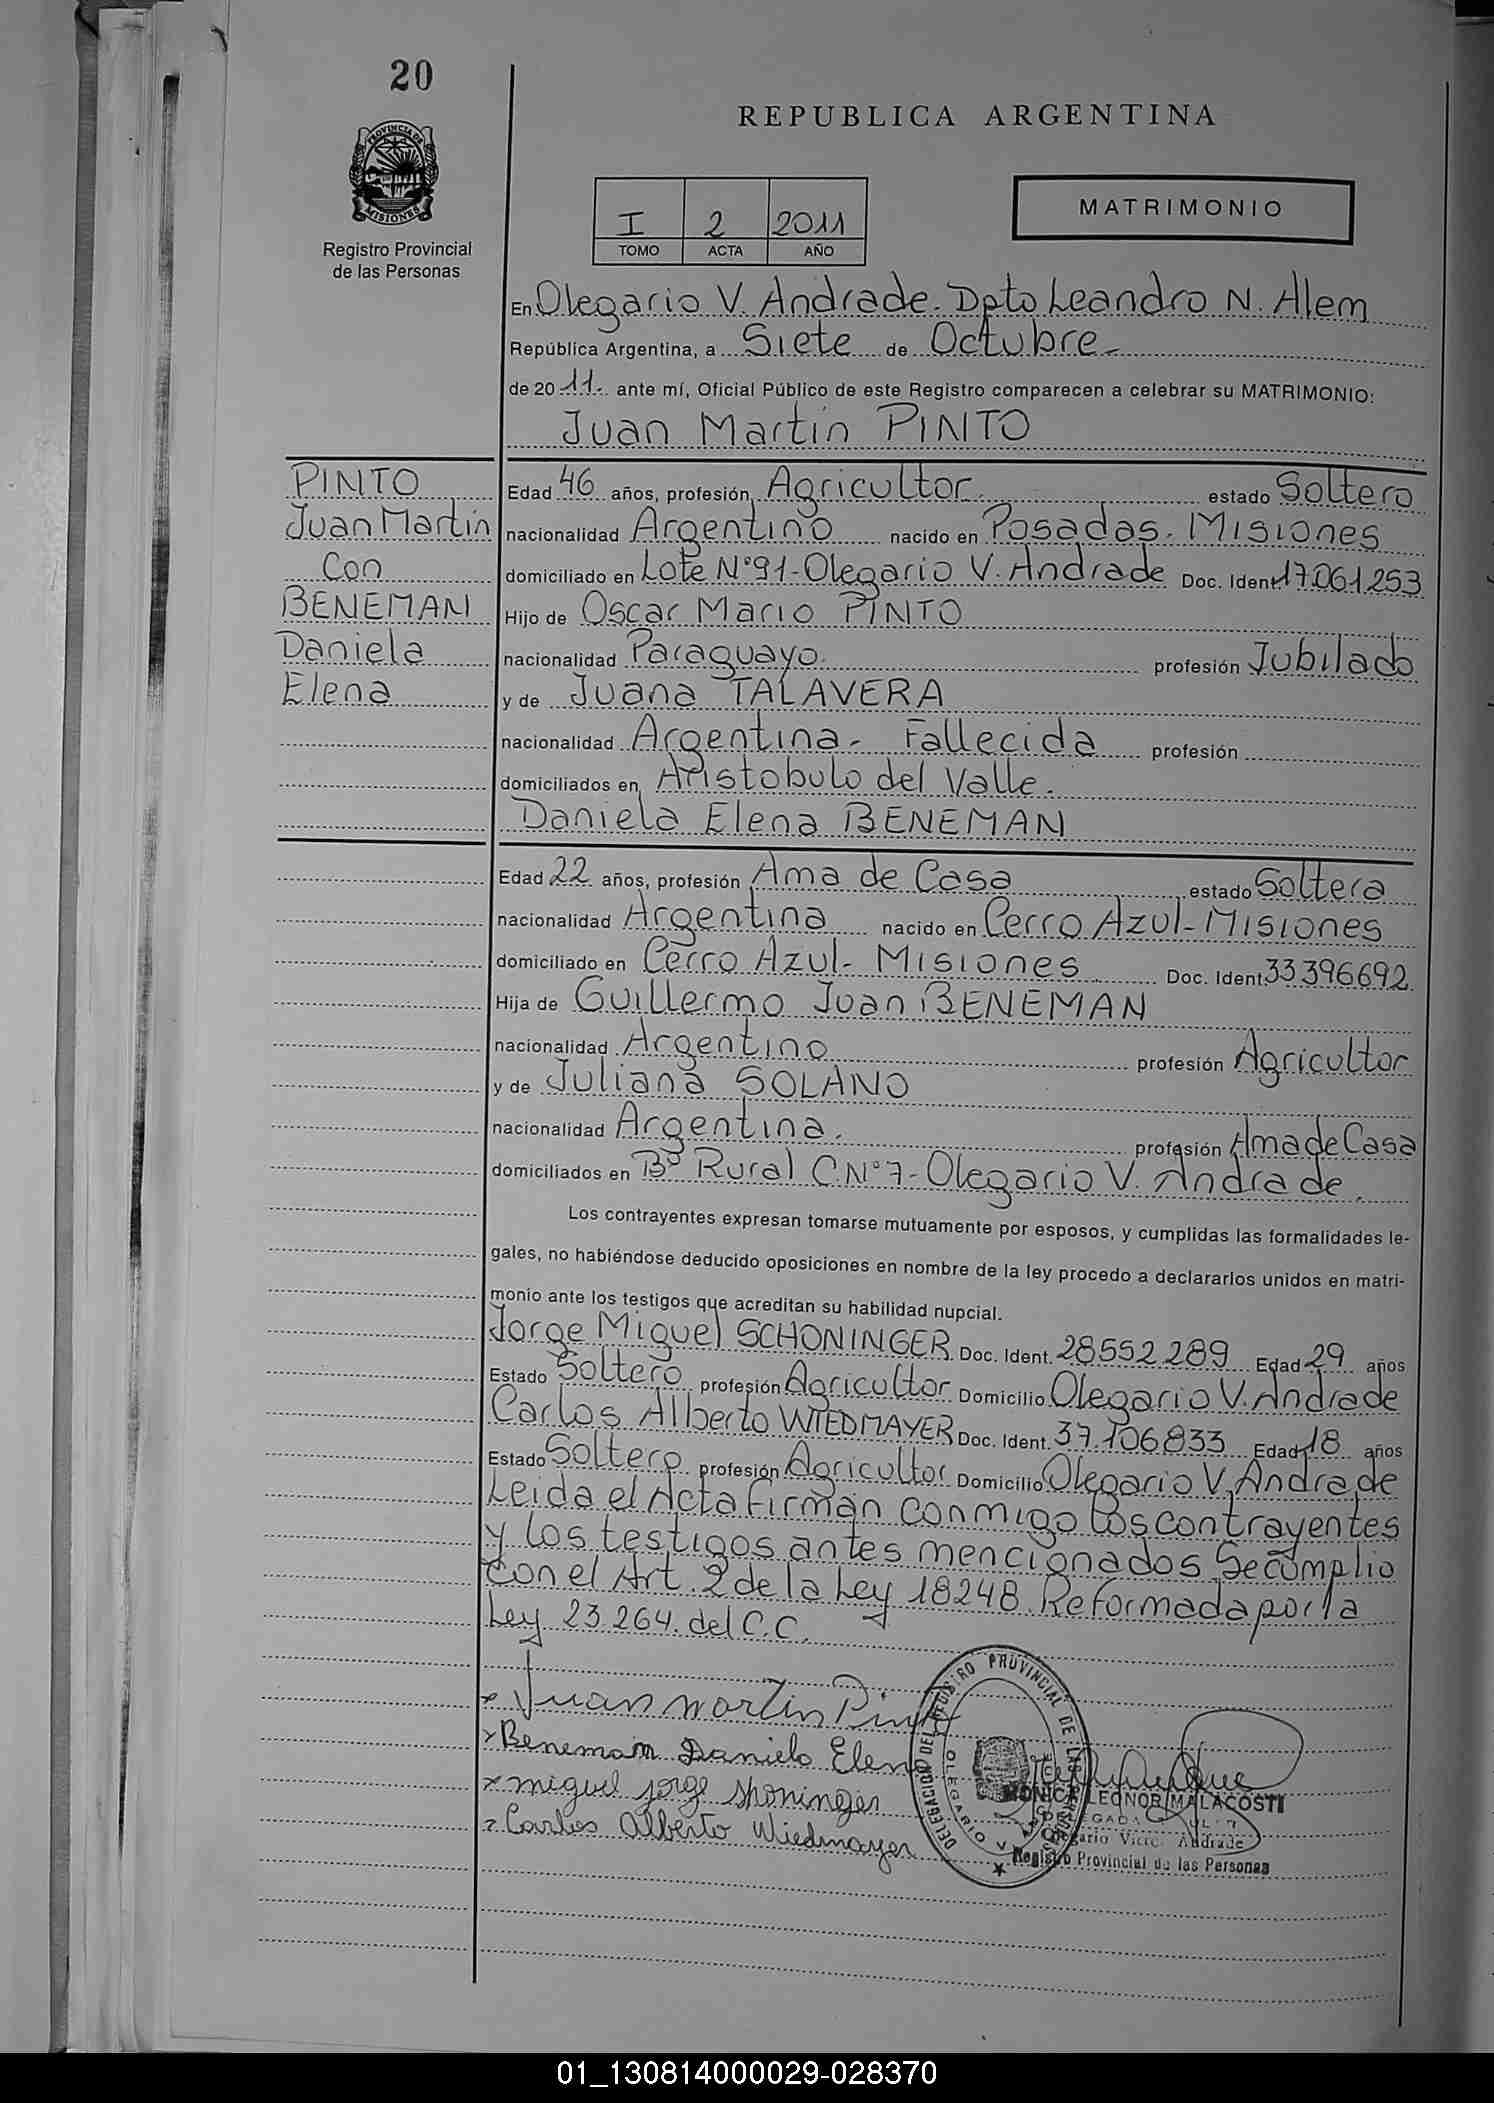 20
REPUBLICA ARGENTINA
PROVINCIA DE
MISIONES
Registro Provincial
de las Personas
I 2 2011
TOMO ACTA AÑO
MATRIMONIO
En Olegario V. Andrade. Dpto Leandro N. Alem
República Argentina, a Siete de Octubre
de 2011. ante mí, Oficial Público de este Registro comparecen a celebrar su MATRIMONIO:
Juan Martin PINTO
PINTO
Juan Martin
Con
BENEMAN
Daniela
Elena
Edad 46 años, profesión Agricultor. estado Soltero
nacionalidad Argentino nacido en Posadas. Misiones
domiciliado en Lote N°91-Olegario V. Andrade Doc. Ident. 17.061.253
Hijo de Oscar Mario PINTO
nacionalidad Paraguayo. profesión Jubilado
y de Juana TALAVERA
nacionalidad Argentina- Fallecida profesión
domiciliados en Aristobulo del Valle.
Daniela Elena BENEMAN
Edad 22 años, profesión Ama de Casa estado Soltera
nacionalidad Argentina nacido en Cerro Azul-Misiones
domiciliado en Cerro Azul- Misiones Doc. Ident. 33.396692
Hija de Guillermo Juan BENEMAN
nacionalidad Argentino profesión Agricultor
y de Juliana SOLANO
nacionalidad Argentina. profesión Ama de Casa
domiciliados en B° Rural C.N°7-Olegario V. Andrade.
Los contrayentes expresan tomarse mutuamente por esposos, y cumplidas las formalidades le-
gales, no habiéndose deducido oposiciones en nombre de la ley procedo a declararlos unidos en matri-
monio ante los testigos que acreditan su habilidad nupcial.
Jorge Miguel SCHONINGER Doc. Ident. 28552289 Edad 29 años
Estado Soltero profesión Agricultor Domicilio Olegario V. Andrade
Carlos Alberto WIEDMAYER Doc. Ident. 37.106833 Edad 18 años
Estado Soltero profesión Agricultor Domicilio Olegario V. Andrade
Leida el Acta Firman conmigo los contrayentes
y los testigos antes mencionados. Se cumplio
con el Art. 2 de la Ley 18248. Reformada por la
Ley 23.264. del C.C.
x Juan martin Pinto
x Beneman Daniela Elena
x miguel jorge shoninger
x Carlos Alberto Wiedmayer
DELEGACION DEL REGISTRO PROVINCIAL DE LAS PERSONAS
OLEGARIO V.
MONICA LEONOR MALACOSTI
Olegario Victor Andrade
Registro Provincial de las Personas
01_130814000029-028370